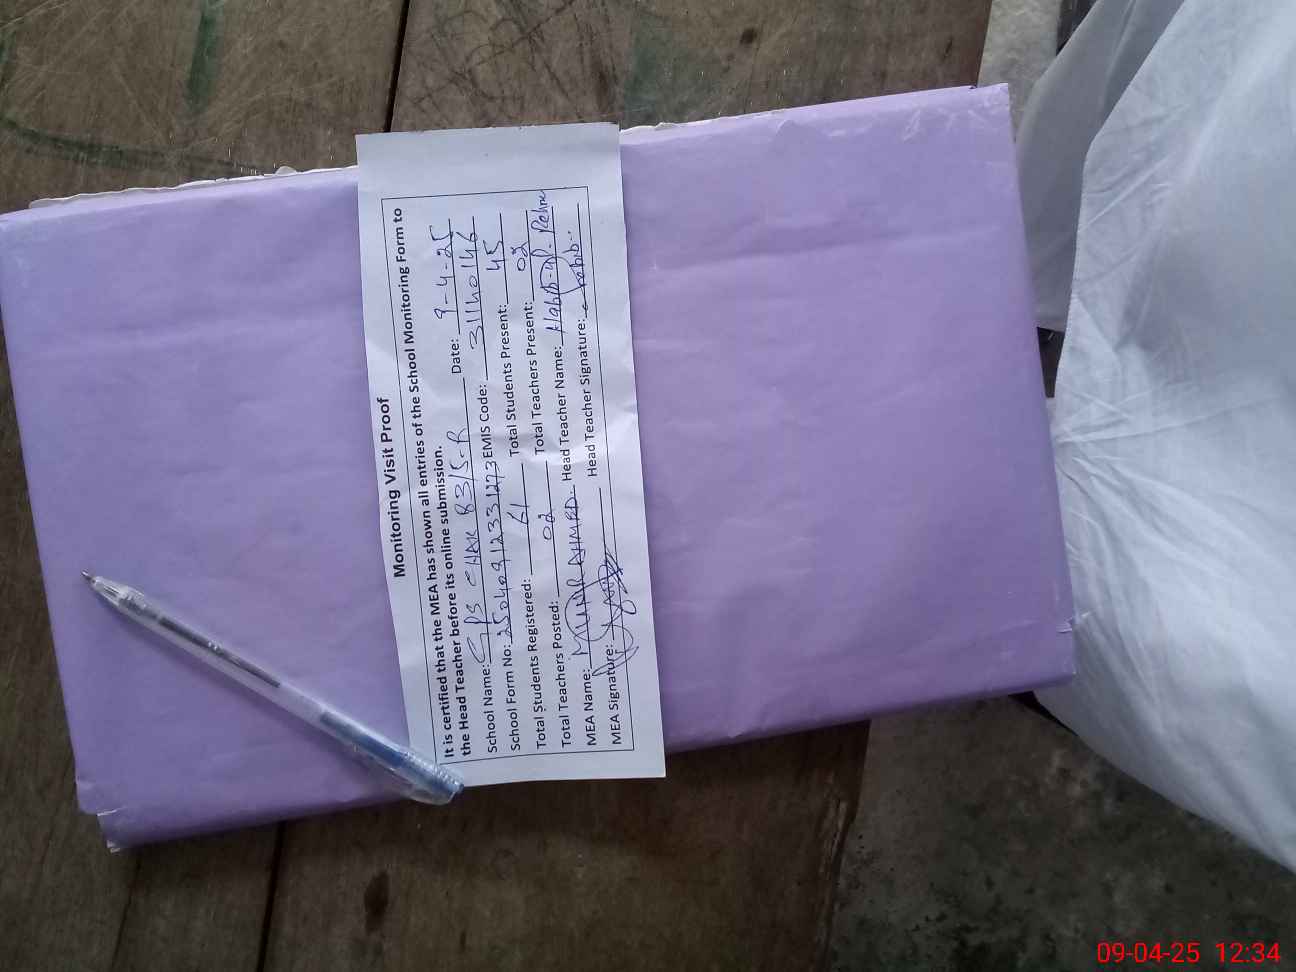 Monitoring Visit Proof
It is certified that the MEA has shown all entries of the School Monitoring Form to
the Head Teacher before its online submission.
School Name: GPS CHAK 83/5-R Date: 9-4-25
School Form No: 25040912331273 EMIS Code: 31140146
Total Students Registered: 61 Total Students Present: 45
Total Teachers Posted: 02 Total Teachers Present: 02
MEA Name: MUNIR AHMED. Head Teacher Name: Habib-ul-Rehm
MEA Signature: Head Teacher Signature: Habib..
09-04-25 12:34